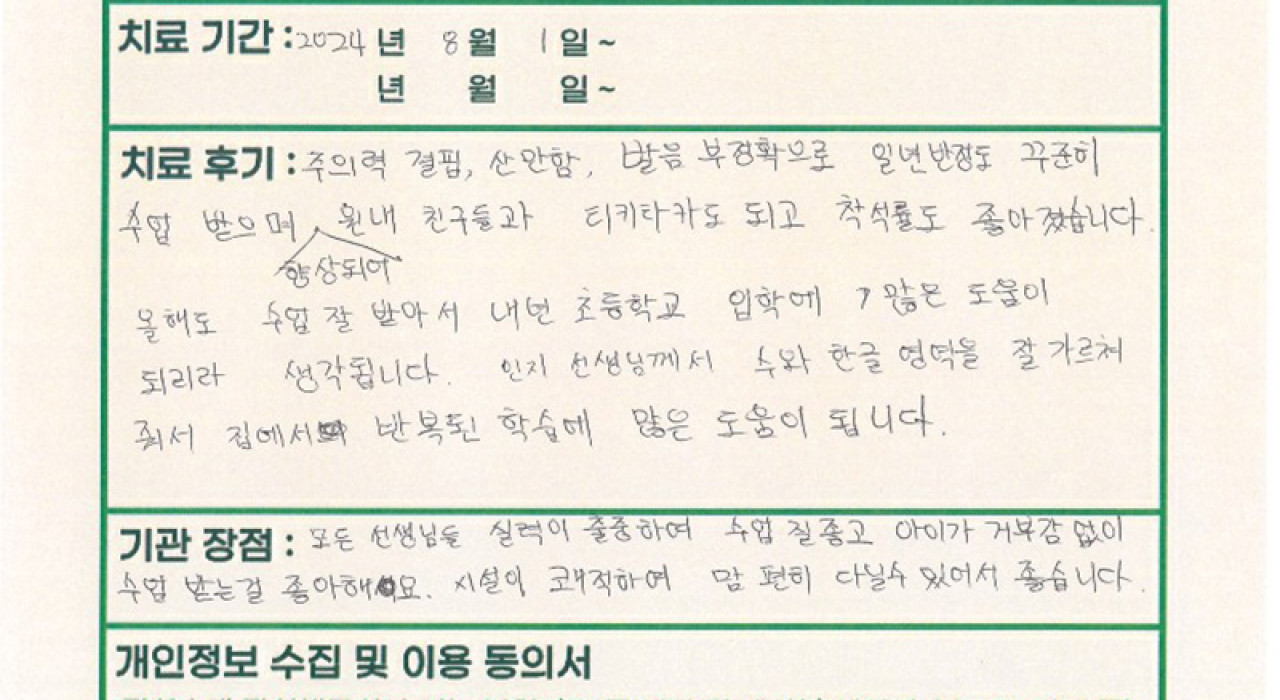 치료 기간 : 2024 년 8 월 1 일 ~
년 월 일 ~
치료 후기 : 주의력 결핍, 산만함, 발음 부정확으로 일년반정도 꾸준히
수업 받으며 원내 친구들과 티키타카도 되고 착석률도 좋아졌습니다.
향상되어
올해도 수업 잘 받아서 내년 초등학교 입학에 많은 도움이
되리라 생각됩니다. 인지 선생님께서 수와 한글 영역을 잘 가르쳐
줘서 집에서 반복된 학습에 많은 도움이 됩니다.
기관 장점 : 모든 선생님들 실력이 출중하여 수업 질좋고 아이가 거부감 없이
수업 받는걸 좋아해요. 시설이 쾌적하여 맘 편히 다닐수 있어서 좋습니다.
개인정보 수집 및 이용 동의서